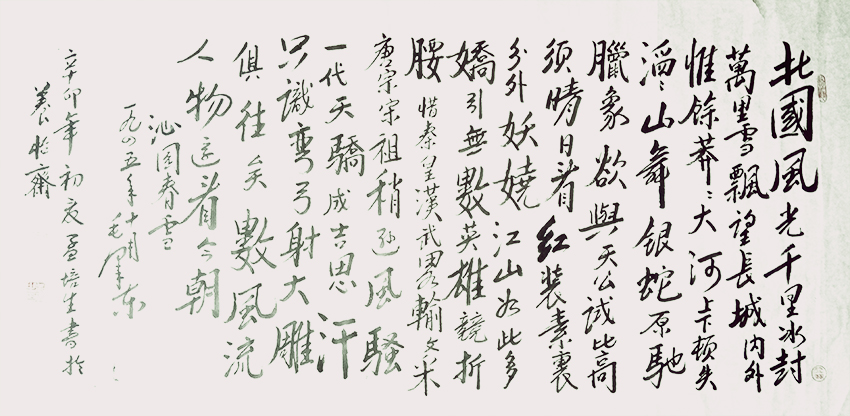 北國風光千里冰封
萬里雪飄望長城內外
惟餘莽〻大河上下頓失
滔〻山舞銀蛇原馳
臘象欲與天公試比高
須晴日看紅裝素裹
分外妖嬈江山如此多
嬌引無數英雄競折
腰惜秦皇漢武略輸文采
唐宗宋祖稍遜風騷
一代天驕成吉思汗
只識彎弓射大雕
俱往矣數風流
人物還看今朝
沁園春雪
一九四五年毛澤東
辛卯年初夏孟培生書於
養怡齋